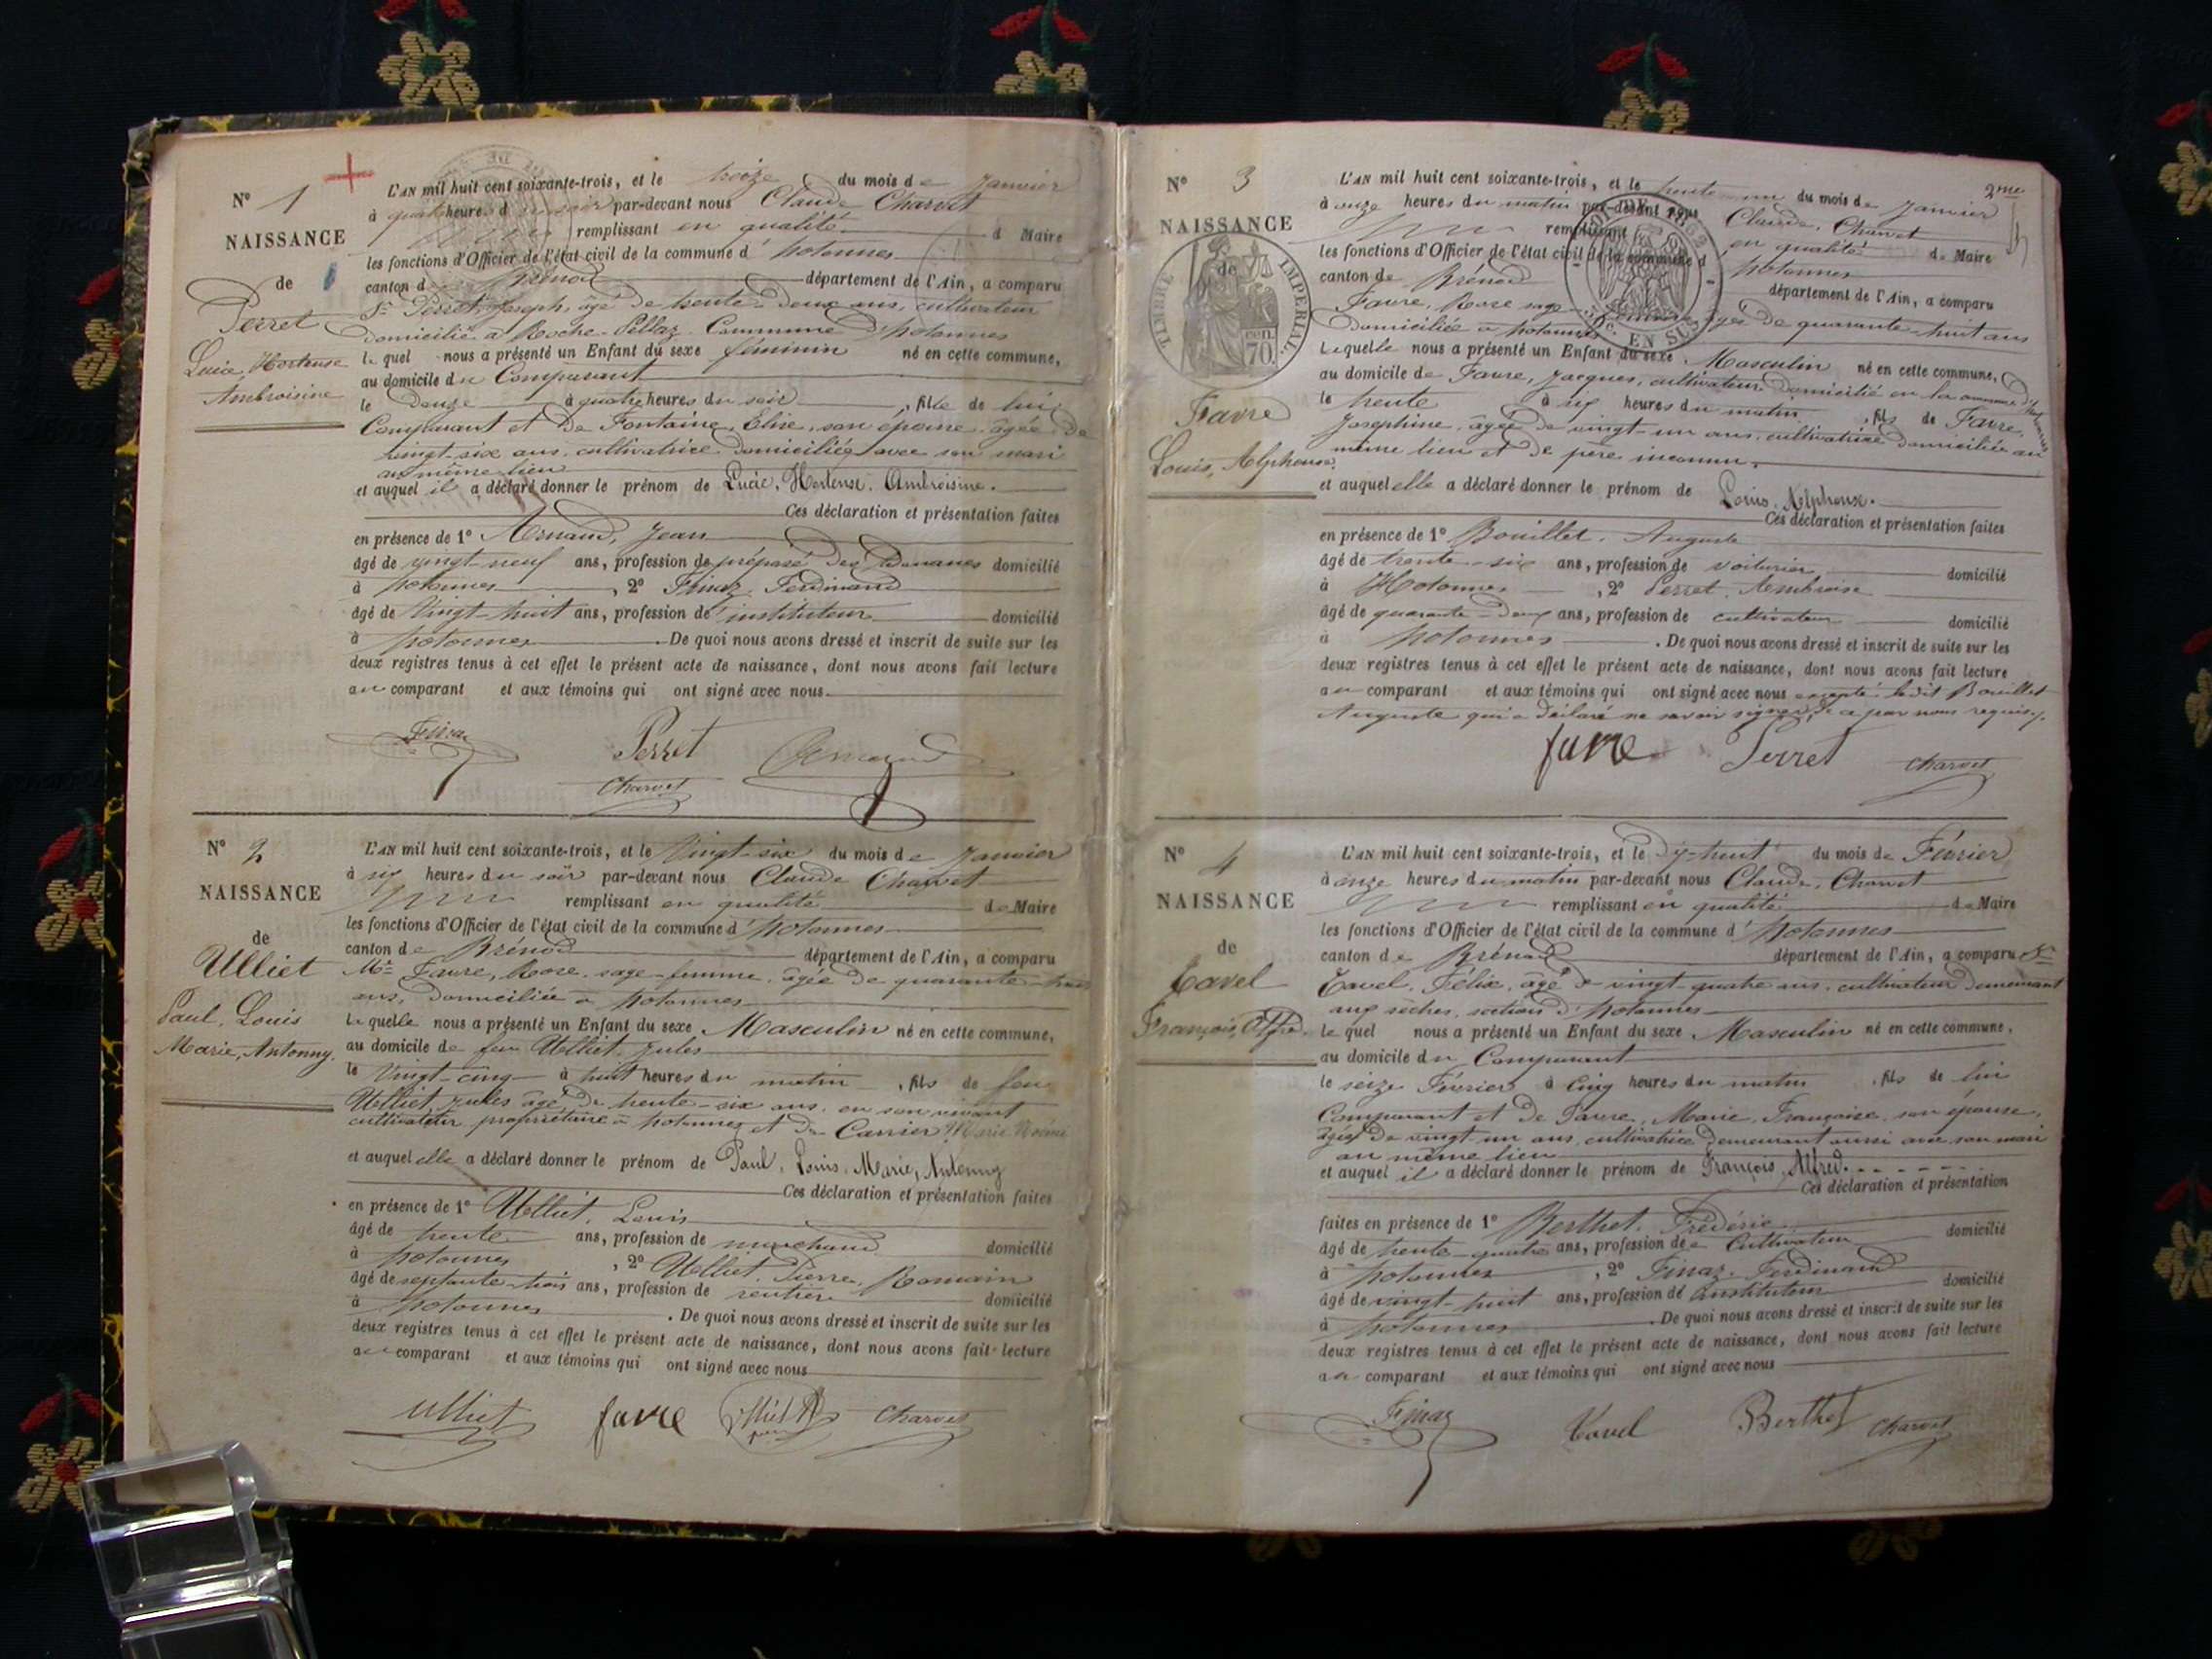 N° 1
NAISSANCE
de
Perret
Lucie, Hortense
Ambroisine
L'AN mil huit cent soixante-trois, et le treize du mois de Janvier
à quatre heures du soir par-devant nous Claude Charvet
remplissant en qualité d Maire
les fonctions d'Officier de l'état civil de la commune d' hotonnes
canton d Brénod département de l'Ain, a comparu
Sr Perret, Joseph, âgé de trente-deux ans, cultivateur
domicilié à Roche-Pellaz Commune d'hotonnes
lequel nous a présenté un Enfant du sexe féminin né en cette commune,
au domicile du Comparant
le douze à quatre heures du soir, fille de lui
Comparant et de Fontaine, Elise, son épouse âgée de
vingt-six ans, cultivatrice domiciliée avec son mari
au même lieu
et auquel il a déclaré donner le prénom de Lucie, Hortense, Ambroisine.
Ces déclaration et présentation faites
en présence de 1° Arnaud, Jean
âgé de vingt neuf ans, profession de préposé des Douanes domicilié
à hotonnes, 2° Finaz Ferdinand
âgé de Vingt-huit ans, profession d'instituteur domicilié
à hotonnes. De quoi nous avons dressé et inscrit de suite sur les
deux registres tenus à cet effet le présent acte de naissance, dont nous avons fait lecture
au comparant et aux témoins qui ont signé avec nous.
Finaz Perret Arnaud
Charvet
N° 2
NAISSANCE
de
Ulliet
Paul, Louis
Marie, Antonny.
L'AN mil huit cent soixante-trois, et le Vingt-six du mois de Janvier
à six heures du soir par-devant nous Claude Charvet
remplissant en qualité de Maire
les fonctions d'Officier de l'état civil de la commune d' hotonnes
canton de Brénod département de l'Ain, a comparu
Favre, Rose, sage-femme, âgée de quarante-huit
ans, domiciliée à hotonnes
laquelle nous a présenté un Enfant du sexe Masculin né en cette commune,
au domicile de feu Ulliet, Jules
le Vingt-cinq à huit heures du matin, fils de feu
Ulliet, Jules âgé de trente-six ans, en son vivant
cultivateur propriétaire à hotonnes et de Carrier Marie Noémi
et auquel elle a déclaré donner le prénom de Paul, Louis, Marie, Antonny
Ces déclaration et présentation faites
en présence de 1° Ulliet, Louis
âgé de trente ans, profession de marchand domicilié
à hotonnes, 2° Ulliet, Pierre, Romain
âgé de septante-trois ans, profession de rentier domicilié
à hotonnes. De quoi nous avons dressé et inscrit de suite sur les
deux registres tenus à cet effet le présent acte de naissance, dont nous avons fait lecture
au comparant et aux témoins qui ont signé avec nous
Ulliet favre Charvet
N° 3
NAISSANCE
de
TIMBRE IMPERIAL.
70.
Favre
Louis, Alphonse.
2me
L'AN mil huit cent soixante-trois, et le trente-un du mois de Janvier
à onze heures du matin par-devant nous Claude, Charvet
remplissant en qualité de Maire
les fonctions d'Officier de l'état civil de la commune d' hotonnes
canton de Brénod département de l'Ain, a comparu
EN SUS
Favre, Rose sage-femme âgée de quarante-huit ans
domiciliée à hotonnes
laquelle nous a présenté un Enfant du sexe Masculin né en cette commune,
au domicile de Favre, Jacques, cultivateur domicilié en la commune d'hotonnes
le trente à six heures du matin, fils de Favre,
Josephine, âgée de vingt-un ans, cultivatrice domiciliée au
même lieu et de père inconnu.
et auquel elle a déclaré donner le prénom de Louis, Alphonse.
Ces déclaration et présentation faites
en présence de 1° Bouillet, Auguste
âgé de trente-six ans, profession de voiturier domicilié
à Hotonnes, 2° Perret, Ambroise
âgé de quarante-deux ans, profession de cultivateur domicilié
à hotonnes. De quoi nous avons dressé et inscrit de suite sur les
deux registres tenus à cet effet le présent acte de naissance, dont nous avons fait lecture
au comparant et aux témoins qui ont signé avec nous excepté ledit Bouillet
Auguste qui a déclaré ne savoir signer, de ce par nous requis.
favre Perret Charvet
N° 4
NAISSANCE
de
Tavel
François, Alfred.
L'AN mil huit cent soixante-trois, et le dix-huit du mois de Février
à onze heures du matin par-devant nous Claude, Charvet
remplissant en qualité de Maire
les fonctions d'Officier de l'état civil de la commune d' hotonnes
canton de Brénod département de l'Ain, a comparu Sr
Tavel, Félix, âgé de vingt-quatre ans, cultivateur demeurant
aux sèches, section d'hotonnes
lequel nous a présenté un Enfant du sexe Masculin né en cette commune,
au domicile du Comparant
le seize Février à cinq heures du matin, fils de lui
Comparant et de Favre, Marie, Françoise, son épouse,
âgée de vingt-un ans, cultivatrice demeurant aussi avec son mari
au même lieu
et auquel il a déclaré donner le prénom de François, Alfred.
Ces déclaration et présentation
faites en présence de 1° Berthet, Frédéric
âgé de trente-quatre ans, profession de Cultivateur domicilié
à hotonnes, 2° Finaz, Ferdinand
âgé de vingt-huit ans, profession d'instituteur domicilié
à hotonnes. De quoi nous avons dressé et inscrit de suite sur les
deux registres tenus à cet effet le présent acte de naissance, dont nous avons fait lecture
au comparant et aux témoins qui ont signé avec nous
Finaz Tavel Berthet Charvet